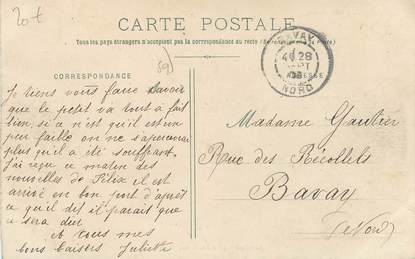 20 t
CARTE POSTALE
Tous les pays étrangers n'acceptent pas la correspondance au recto
59
BAVAY
NORD
CORRESPONDANCE
ADRESSE
Je viens vous faire savoir
que le petit va tout à fait
bien, si ce n'est qu'il est un
peu faible on ne s'apercevrai
plus qu'il a été souffrant.
J'ai reçu ce matin des
nouvelles de Félix il est
arrivé en bon port d'après
ce qu'il dit il parait que
ce sera dur
A tous mes
bons baisers Juliette
Madame Gautier
Rue des Récollets
Bavay
(Nord)